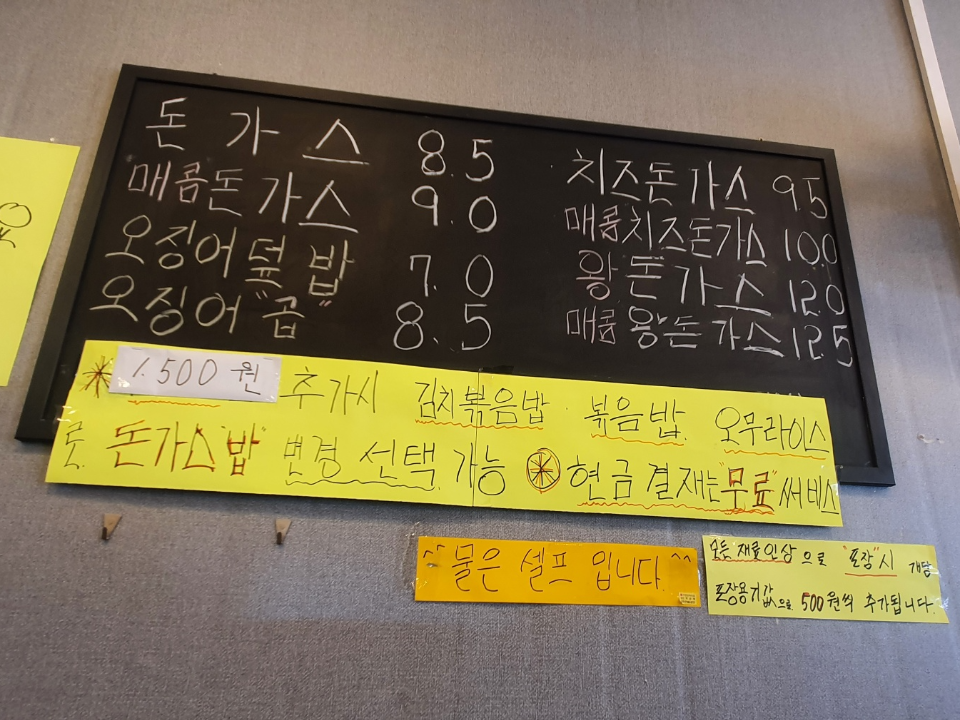 돈가스 8.5
매콤돈가스 9.0
오징어덮밥 7.0
오징어"곱" 8.5
치즈돈가스 9.5
매콤치즈돈가스 10.0
왕돈가스 12.0
매콤왕돈가스 12.5
1.500원 추가시 김치볶음밥 볶음밥 오무라이스
로 돈가스"밥" 변경 선택 가능 현금결재는"무료"써비스
^^ 물은 셀프 입니다 ^^
모든 재료인상으로 "포장"시 개당
포장용기값으로 500원씩 추가됩니다.